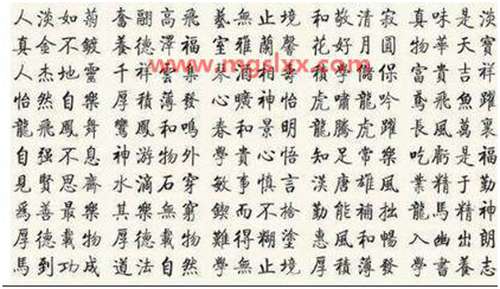 人淡如菊 奮翮高飛 藝無止境 和敬清寂 真味是淡
真金不鍍 養德澤福 室雅蘭馨 花好月圓 物華天寶
人杰地靈 千祥雲集 琴 相 積學儲 富貴吉祥
www.mgslxx.com
怡然自樂 厚積薄發 心曠神怡 虎嘯龍吟 鳶飛魚躍
龍飛鳳舞 鸞鳳和鳴 春和景明 龍騰虎躍 長風萬裏
自强不息 神游物外 和貴心悟 知足常樂 吃虧是福
見賢思齊 水滴石穿 敏事慎言 漢唐雄風 業精于勤
爲善最樂 其樂無窮 鍥而不捨 勤能補拙 龍馬精神
厚德載物 厚德載物 難得糊塗 惠風和暢 入幽出朗
馬到功成 道法自然 學無止境 厚積薄發 學書養志